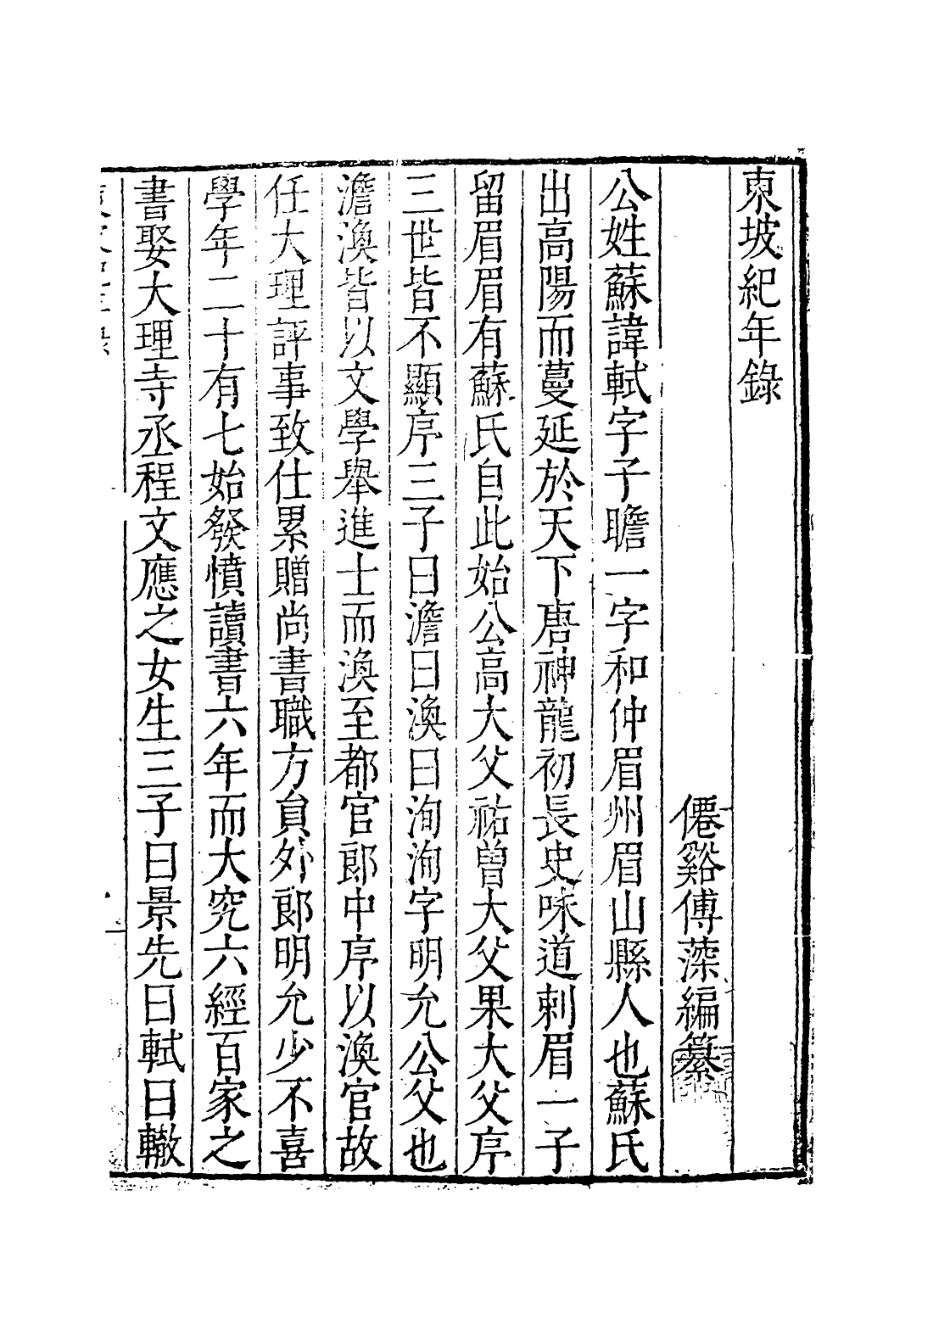 東坡紀年錄
僊谿傅藻編纂
公姓蘇諱軾字子瞻一字和仲眉州眉山縣人也蘇氏
出高陽而蔓延於天下唐神龍初長史味道刺眉一子
留眉眉有蘇氏自此始公高大父祜曾大父杲大父序
三世皆不顯序三子曰澹曰渙曰洵洵字明允公父也
澹渙皆以文學舉進士而渙至都官郎中序以渙官故
任大理評事致仕累贈尚書職方員外郎明允少不喜
學年二十有七始發憤讀書六年而大究六經百家之
書娶大理寺丞程文應之女生三子曰景先曰軾曰轍